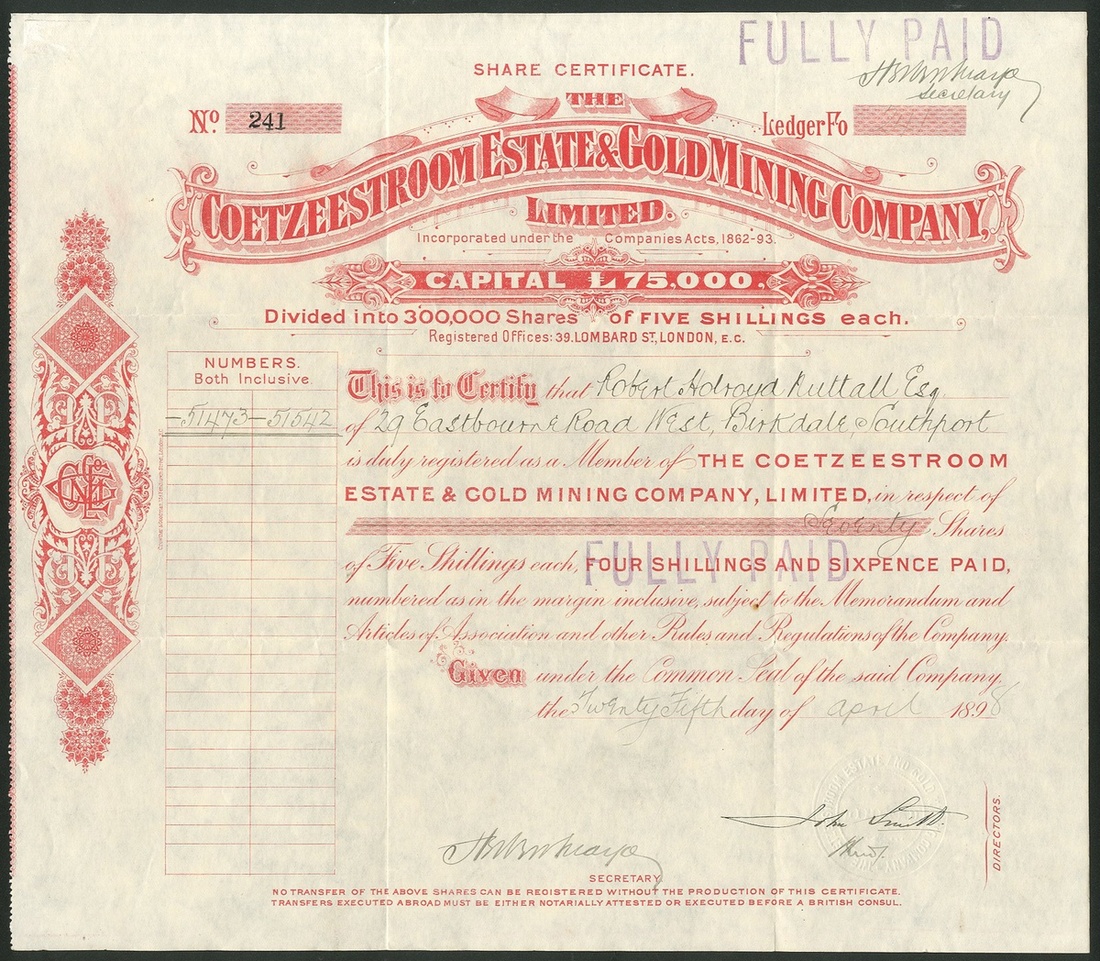 FULLY PAID
SHARE CERTIFICATE.
Secretary
No 241
Ledger Fo
THE
COETZEESTROOM ESTATE & GOLD MINING COMPANY,
LIMITED.
Incorporated under the Companies Acts, 1862-93.
CAPITAL £75,000.
Divided into 300,000 Shares of FIVE SHILLINGS each.
Registered Offices: 39, LOMBARD ST, LONDON, E.C.
NUMBERS.
Both Inclusive.
51473-51542
This is to Certify that Robert Holroyd Nuttall Esq.
of 29 Eastbourne Road West, Birkdale, Southport
is duly registered as a Member of THE COETZEESTROOM
ESTATE & GOLD MINING COMPANY, LIMITED, in respect of
Seventy Shares
of Five Shillings each, FOUR SHILLINGS AND SIXPENCE PAID,
FULLY PAID
numbered as in the margin inclusive, subject to the Memorandum and
Articles of Association and other Rules and Regulations of the Company.
Given under the Common Seal of the said Company,
the Twenty Fifth day of April 1898
John Smith
DIRECTORS.
SECRETARY.
NO TRANSFER OF THE ABOVE SHARES CAN BE REGISTERED WITHOUT THE PRODUCTION OF THIS CERTIFICATE.
TRANSFERS EXECUTED ABROAD MUST BE EITHER NOTARIALLY ATTESTED OR EXECUTED BEFORE A BRITISH CONSUL.